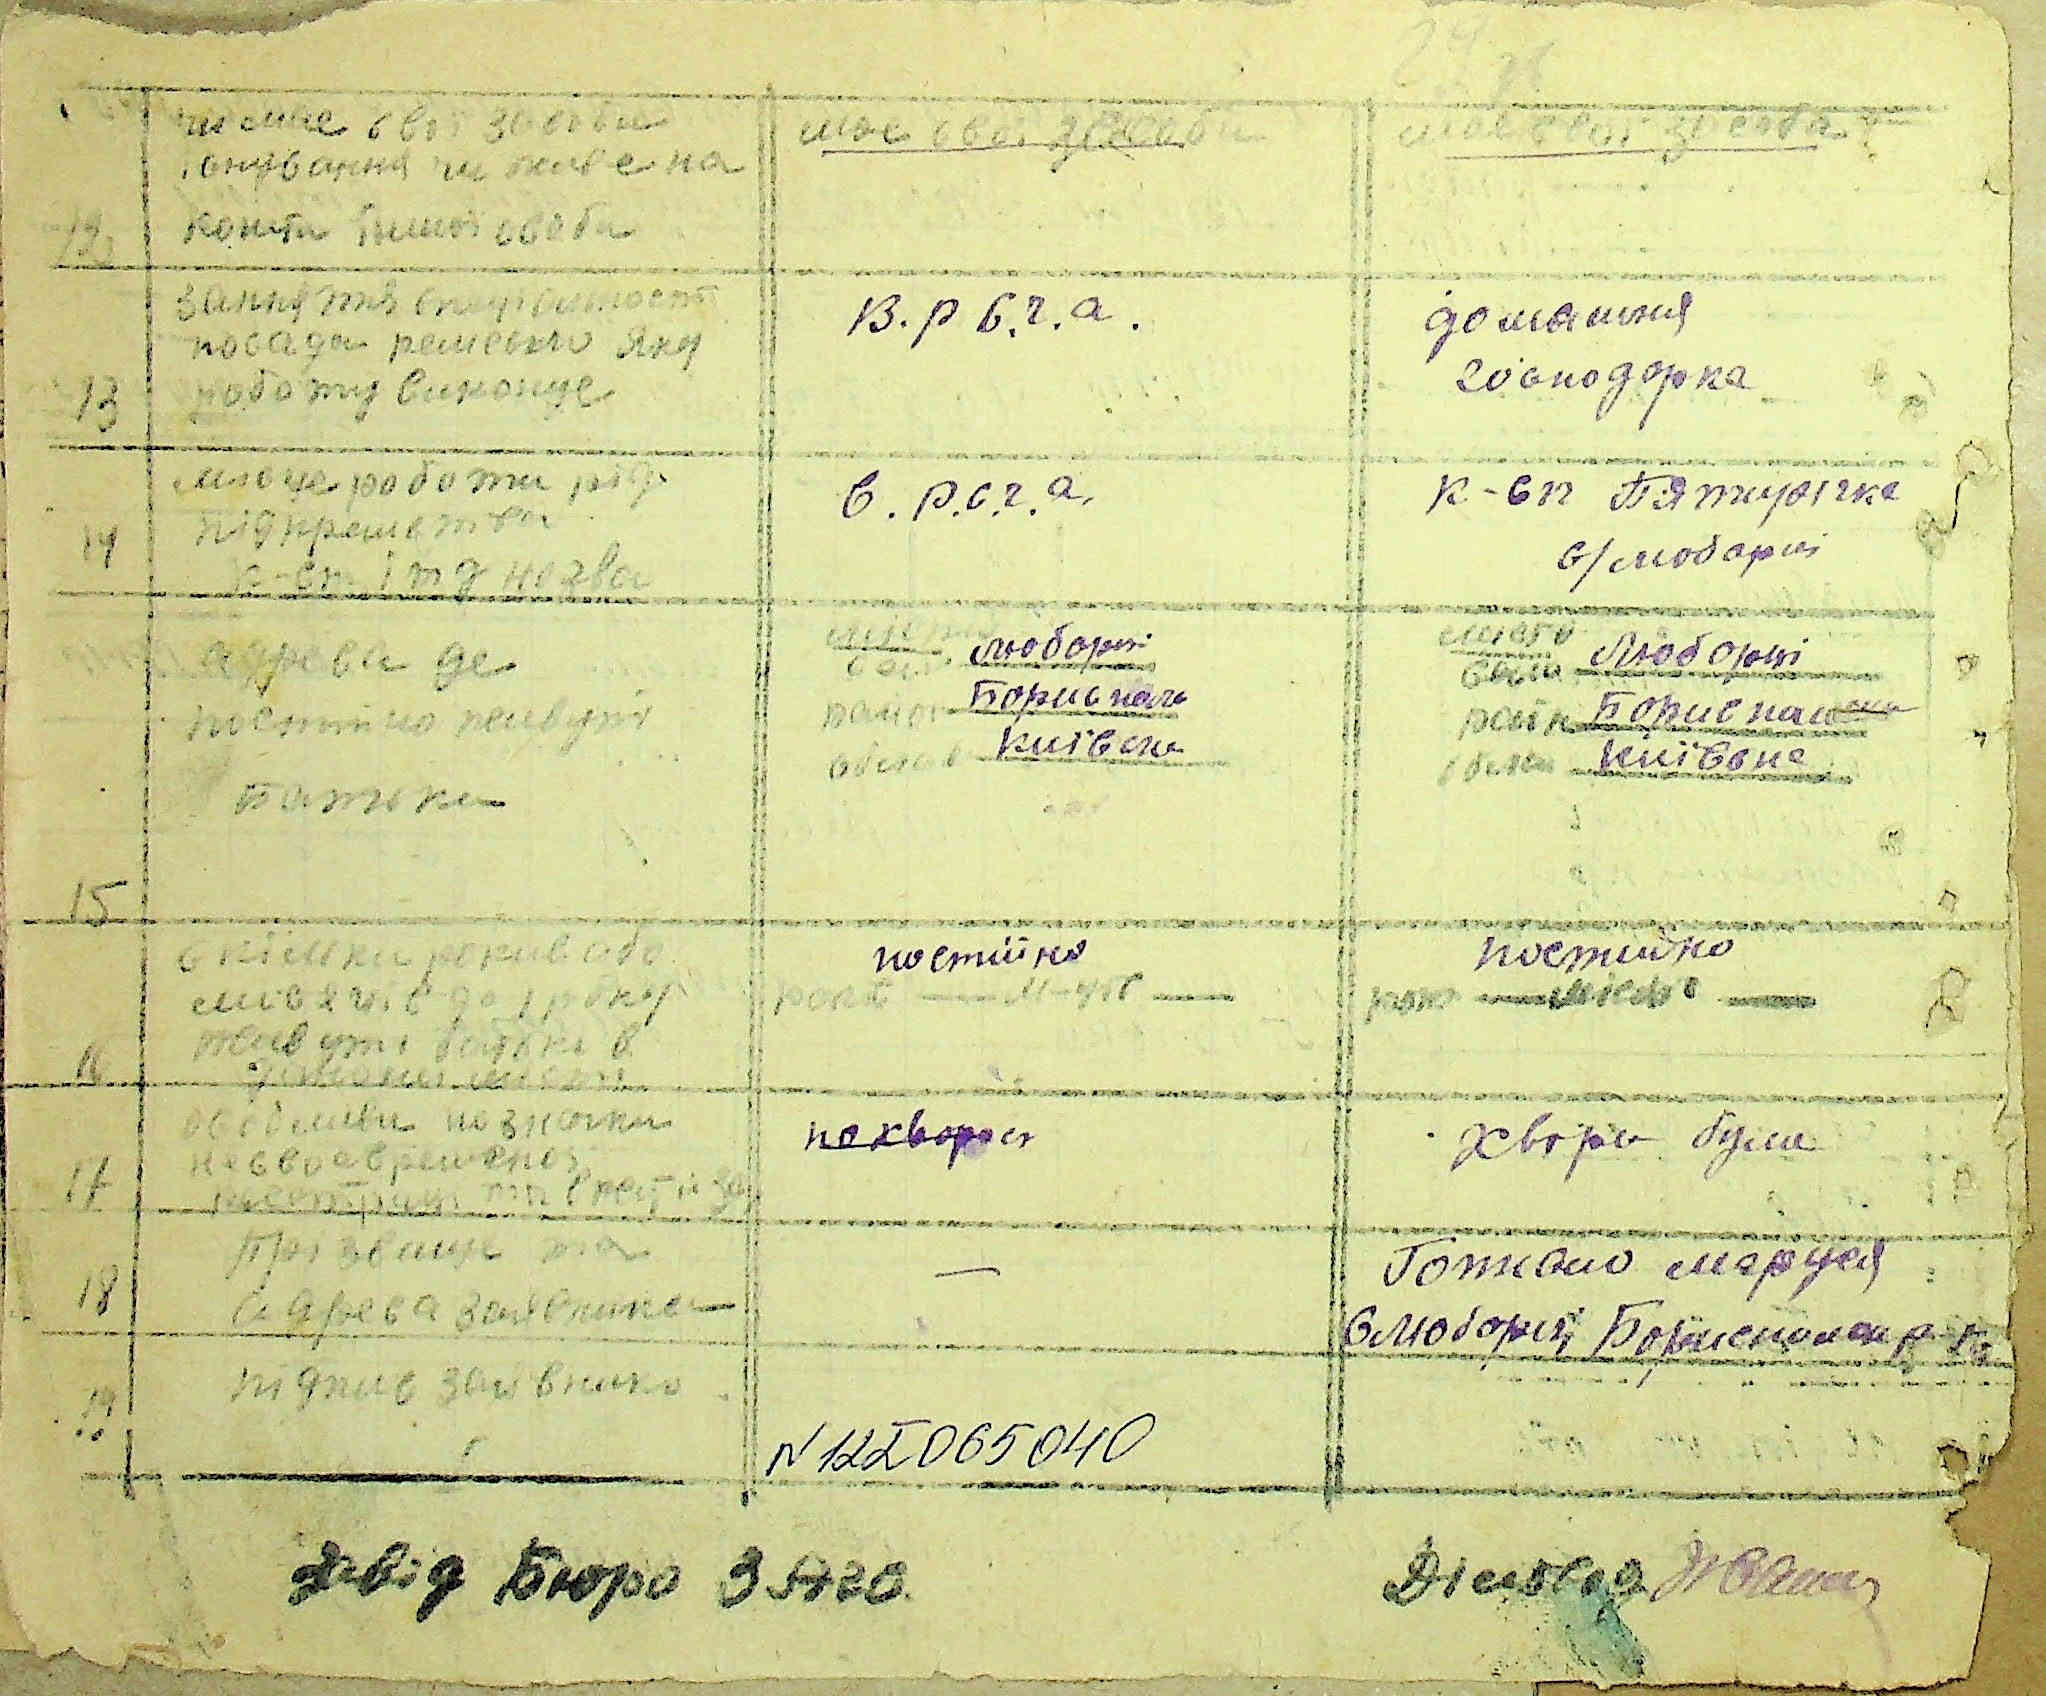 чи має свої засоби
існування чи живе на
12 кошти іншої особи
має свої засоби
має свої засоби
заняття спеціальност
посада ремесло яку
13 роботу виконує
В. Р С. Ч. А.
домашня
господорка
місце роботи
підприємства
14 к-сп і т д назва
В. Р. С. Ч. А.
к-сп Пятирічка
с/ Любарці
адреса де
постійно живуть
батьки
15
село Любарці
район Бориспаль
област Київска
місто
село Любарці
район Бориспал
област Київска
скільки років або
місяців до 1 року
живуть батьки в
16
постійно
рокі — М-ців —
постийно
рокі — місяців —
особливи позначки
несвоєвременої
17 реєстрації
похворост
хвора була
Прізвище та
18 адреса заявника
—
Готкало маруся
с Любарці Бориспольск р-на
19 підпис заявника
N 122065040
Завід Бюро ЗАГС
Діловод